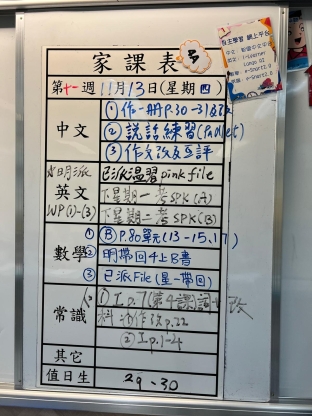 家課表
第十一週 11月13日(星期四)
中文
① 作一冊P.30-31&改
② 說話練習(Padlet)
③ 作文改&互評
英文
WP(1)-(3)
已派溫習pink file
下星期一考SPK(A)
下星期二考SPK(B)
數學
① B P.80單元(13-15,17)
② 明帶回4上B書
③ 已派File(星一帶回)
常識
① I p.7(第4課)詞
P.22
② I p.1-4
其它
值日生
29-30
自主學習 網上平台